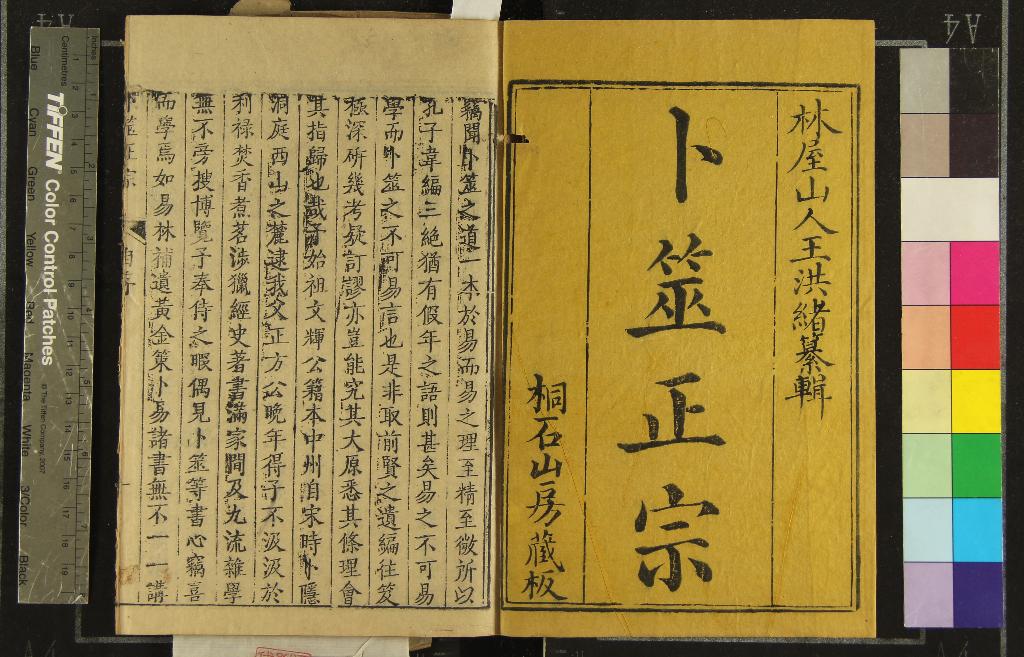 林屋山人王洪緒纂輯
卜筮正宗
桐石山房藏板
竊聞卜筮之道一本於易而易之理至精至微所以
孔子韋編三絕猶有假年之語則甚矣易之不可易
學而卜筮之不可易言也是非取前賢之遺編往笈
極深硏幾考疑訂謬亦豈能究其大原悉其條理會
其指歸也哉予始祖文輝公籍本中州自宋時卜隱
洞庭西山之麓逮我父正方公晚年得子不汲汲於
利祿焚香煮茗涉獵經史著書滿家間及九流雜學
無不旁搜博覽予奉侍之暇偶見卜筮等書心竊喜
而學焉如易林補遺黃金策卜易諸書無不一一講
卜筮正宗
自序
一
TIFFEN Color Control Patches
© The Tiffen Company, 2007
Inches
Centimetres
Blue
Cyan
Green
Yellow
Red
Magenta
White
3/Color
Black
A4